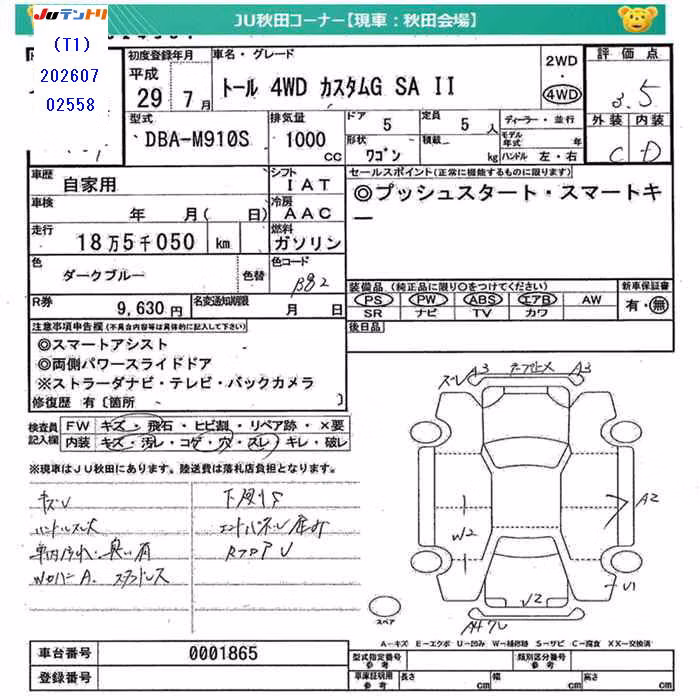 Juテントリ
JU秋田コーナー【現車：秋田会場】
(T1)
202607
02558
初度登録年月
平成
29 7月
車名・グレード
トール 4WD カスタムG SA II
2WD
4WD
評価点
3.5
外装 内装
C D
型式
DBA-M910S
排気量
1000
cc
ドア
5
定員
5人
形状
ワゴン
積載
kg
ディーラー・並行
モデル年式 年
ハンドル 左・右
車歴
自家用
シフト
IAT
車検
年 月( 日)
冷房
AAC
走行
18万5千050 km
燃料
ガソリン
色
ダークブルー
色替
色コード
B82
R券
9,630円
名変通知期限
月 日
セールスポイント(正常に機能するものに限ります)
◎プッシュスタート・スマートキ
ー
装備品(純正品に限り○をつけてください)
PS PW ABS エアB AW
SR ナビ TV カワ
新車保証書
有・無
後日品
注意事項申告欄(不具合内容等は具体的に記入して下さい)
◎スマートアシスト
◎両側パワースライドドア
※ストラーダナビ・テレビ・バックカメラ
修復歴 有〔箇所 〕
検査員
記入欄
FW キズ・飛石・ヒビ割・リペア跡・×要
内装 キズ・汚レ・コゲ・穴・スレ・キレ・破レ
※現車はJU秋田にあります。陸送費は落札店負担となります。
キズU
ハンドルスレ大
車内汚れ・臭い有
下廻りS
RフロアU
ズレ A3 A3
A2
W2
U1
U2
スペア
A-キズ E-エクボ U-凹み W-補修跡 S-サビ C-腐食 XX-交換済
車台番号 0001865
登録番号
型式指定番号
参考
類別区分番号
参考
車庫証明用
参考
長さ cm 幅 cm 高さ cm